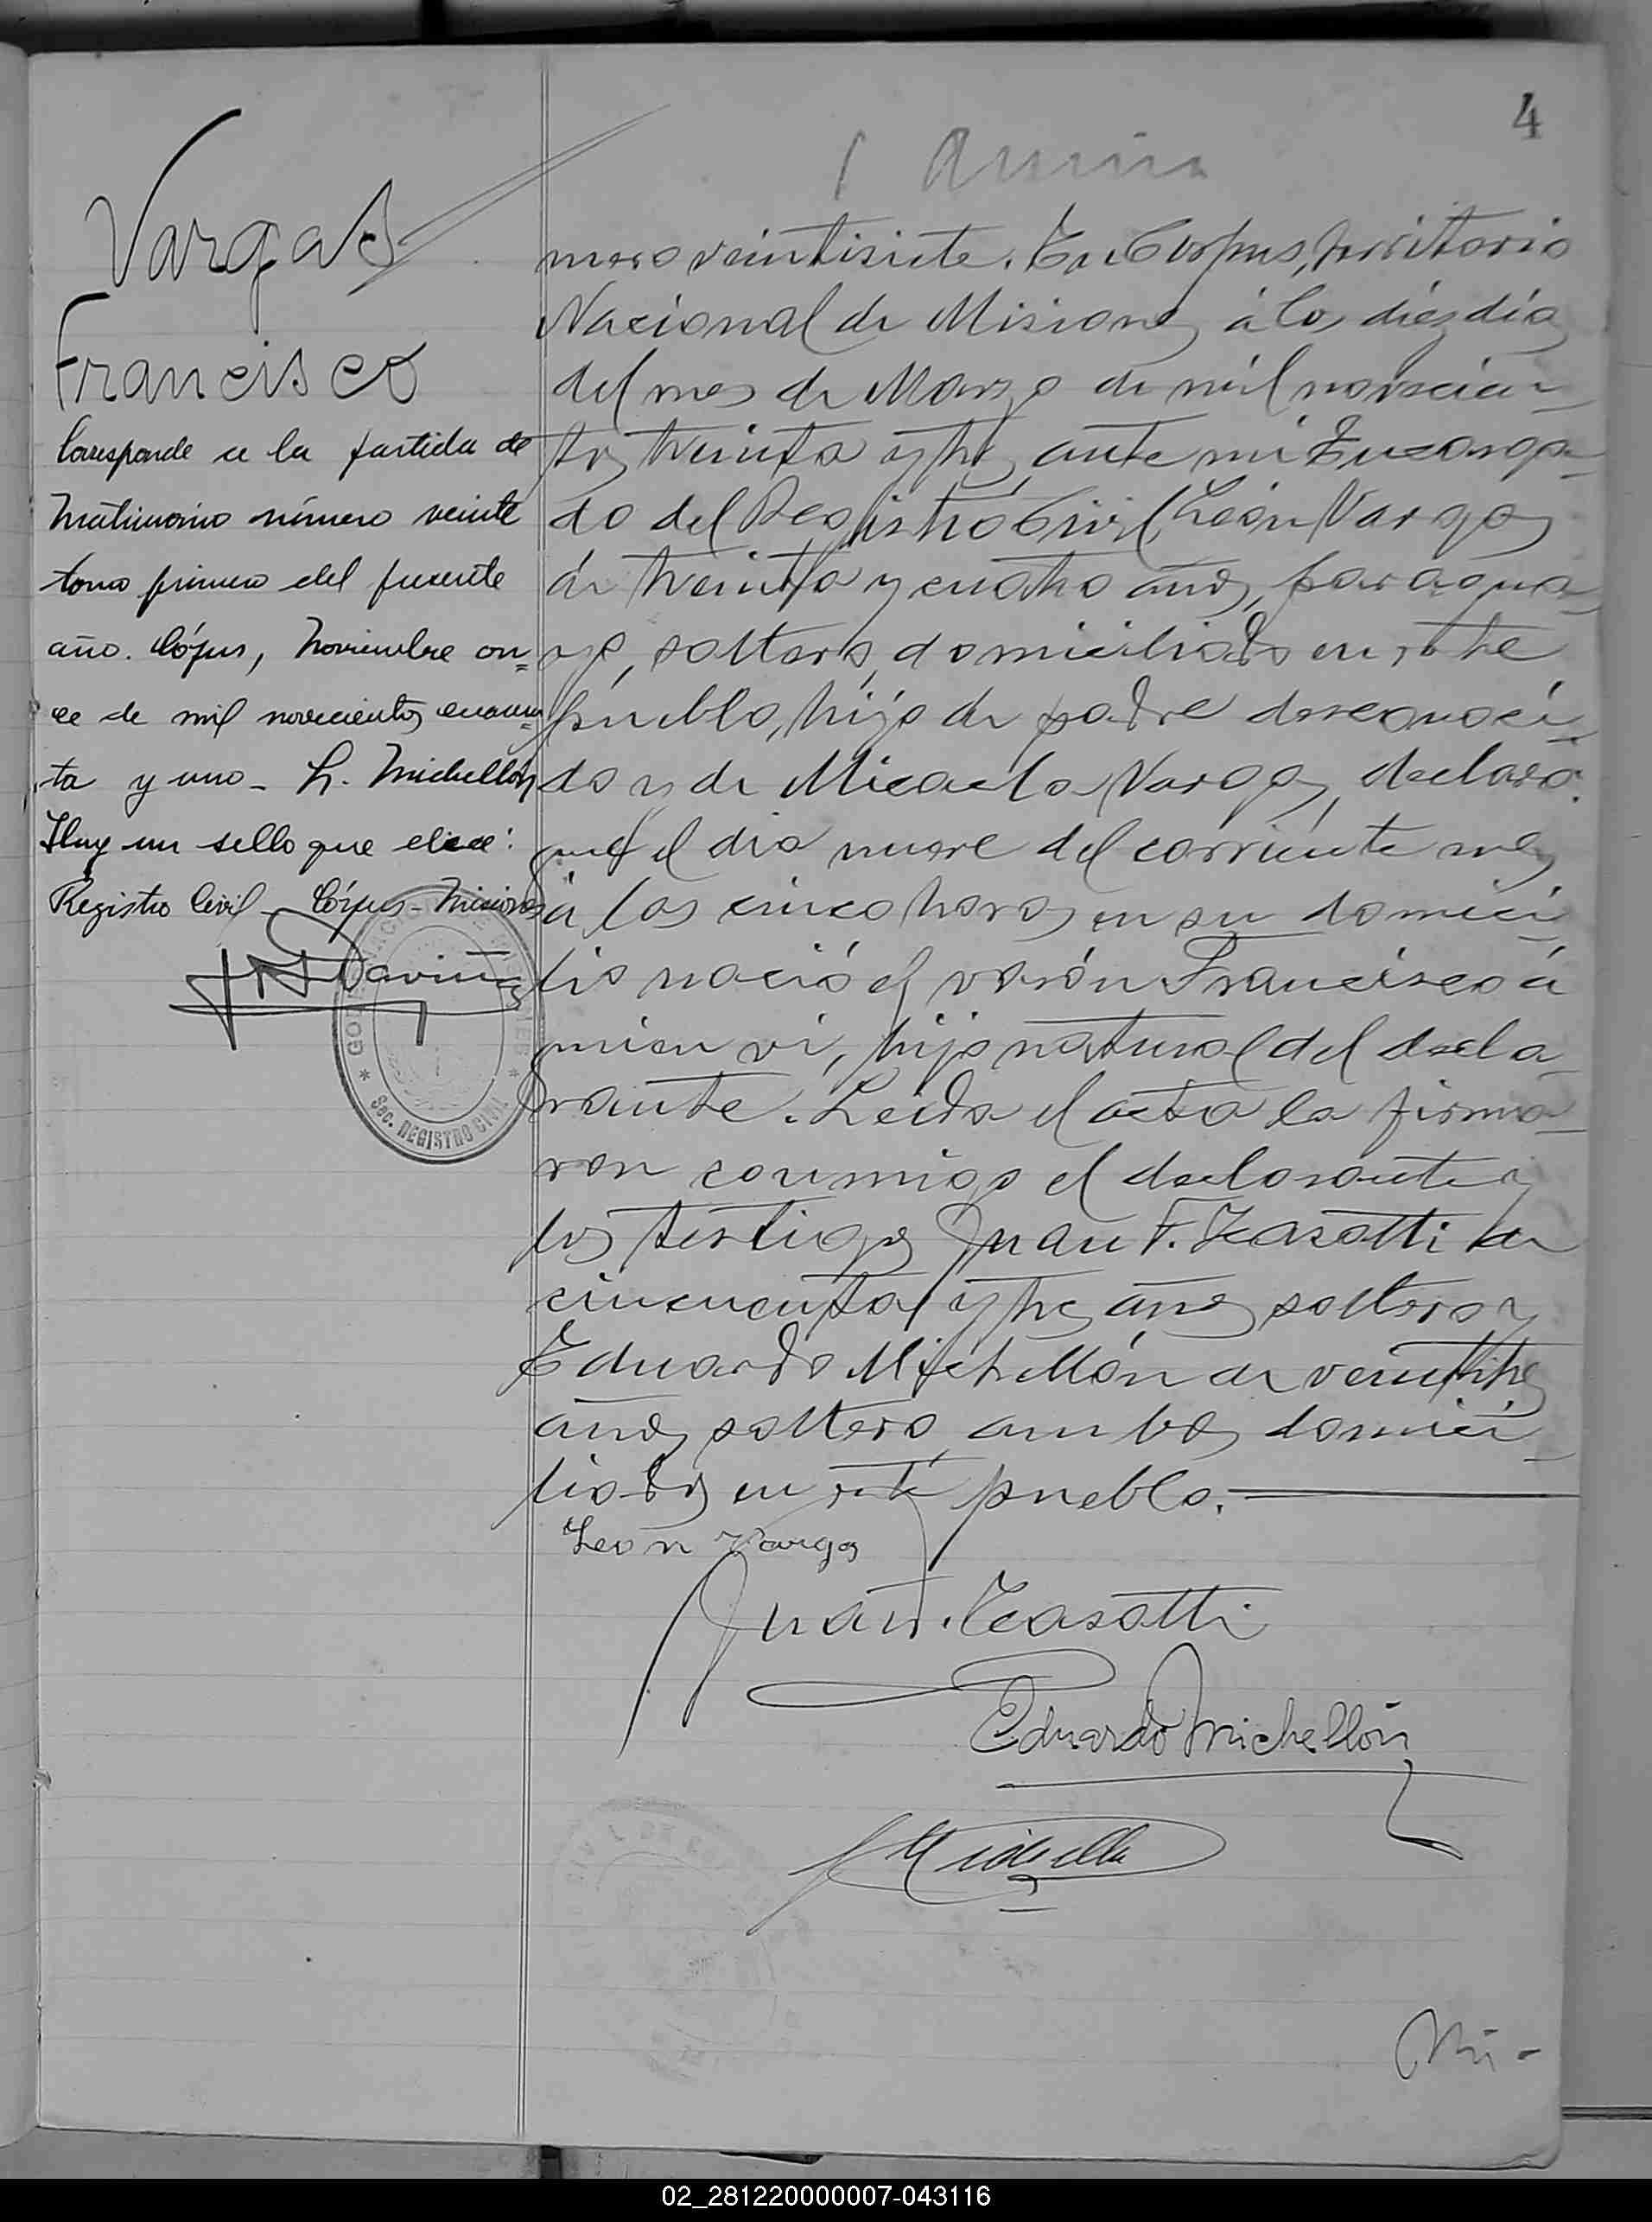 4
Vargas
Francisco
Corresponde a la partida de
Matrimonio número veinte
tomo primero del presente
año. Córpus, Noviembre on=
ce de mil novecientos cuaren=
ta y uno - L. Michellón
Hay un sello que dice:
Registro Civil - Córpus - Misiones
GOBERNACION MISIONES
Sec. REGISTRO CIVIL
mero veintisiete. En Corpus, territorio
Nacional de Misiones á los diez dias
del mes de Marzo de mil novecien-
tos treinta y tres, ante mí Encarga-
do del Registro Civil, León Vargas
de treinta y cuatro años, paragua-
yo, soltero, domiciliado en este
pueblo, hijo de padre desconoci-
do y de Micaela Vargas, declaró:
que el dia nueve del corriente mes
á las cinco horas en su domici-
lio nació el varón Francisco á
quien vi, hijo natural del decla-
rante. Leida el acta la firma-
ron conmigo el declarante y
los testigos Juan F. Zasotti de
cincuenta y tres años soltero y
Eduardo Michellón de veintitres
años soltero, ambos domici-
liados en este pueblo.
Leon Vargas
Juan F. Zasotti
Eduardo Michellón
Nú-
02_281220000007-043116